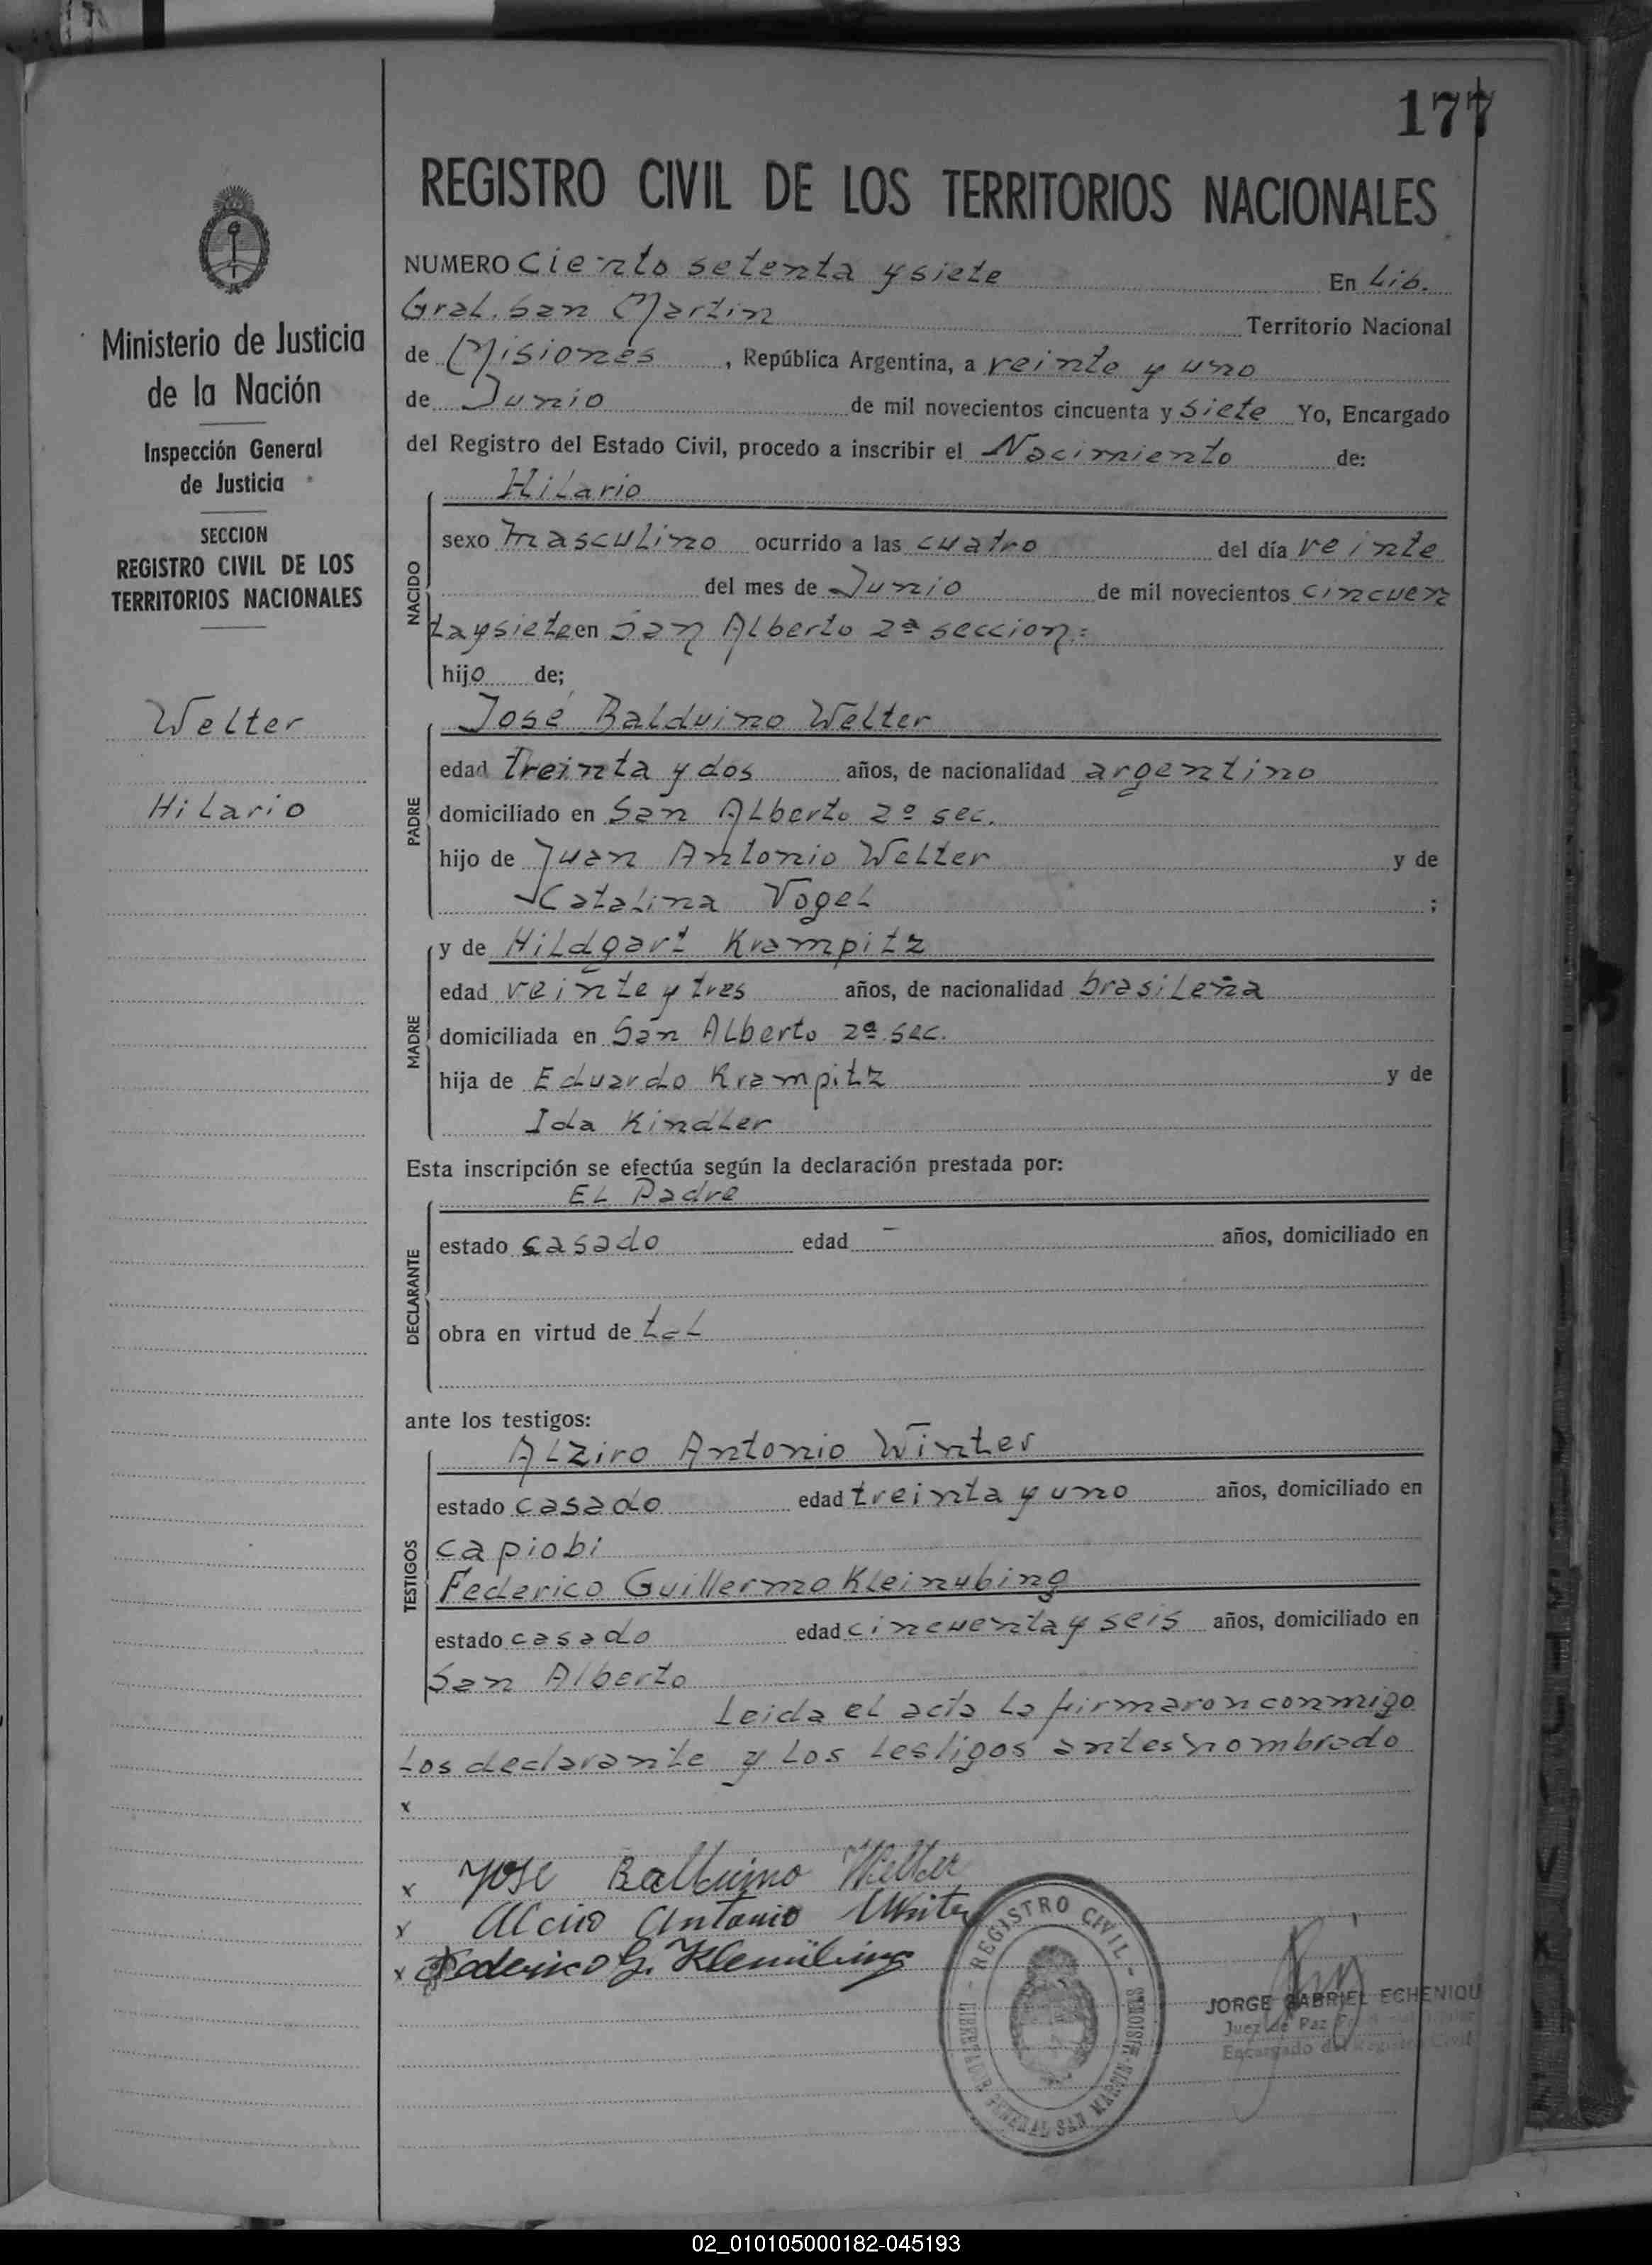 177
REGISTRO CIVIL DE LOS TERRITORIOS NACIONALES
Ministerio de Justicia
de la Nación
Inspección General
de Justicia
SECCION
REGISTRO CIVIL DE LOS
TERRITORIOS NACIONALES
Welter
Hilario
NUMERO Ciento setenta y siete En Lib.
Gral. San Martin Territorio Nacional
de Misiones, República Argentina, a veinte y uno
de Junio de mil novecientos cincuenta y siete Yo, Encargado
del Registro del Estado Civil, procedo a inscribir el Nacimiento de:
NACIDO
Hilario
sexo masculino ocurrido a las cuatro del día veinte
del mes de Junio de mil novecientos cincuen
ta y siete en San Alberto 2ª seccion=
hijo de;
PADRE
José Balduino Welter
edad treinta y dos años, de nacionalidad argentino
domiciliado en San Alberto 2º sec.
hijo de Juan Antonio Welter y de
Catalina Vogel ;
MADRE
y de Hildgart Krampitz
edad veinte y tres años, de nacionalidad brasileña
domiciliada en San Alberto 2ª sec.
hija de Eduardo Krampitz y de
Ida Kindler
Esta inscripción se efectúa según la declaración prestada por:
DECLARANTE
El Padre
estado casado edad - años, domiciliado en
obra en virtud de tal
ante los testigos:
TESTIGOS
Alziro Antonio Winter
estado casado edad treinta y uno años, domiciliado en
capiobi
Federico Guillermo Kleinubing
estado casado edad cincuenta y seis años, domiciliado en
San Alberto
Leida el acta la firmaron conmigo
los declarante y los testigos antes nombrado
x
x José Balduino Welter
x Alciro Antonio Winter
x Federico G. Kleinübing
REGISTRO CIVIL - MISIONES
LIBERTADOR GENERAL SAN MARTIN
JORGE GABRIEL ECHENIQU
Juez de Paz
Encargado del Registro Civil
02_010105000182-045193